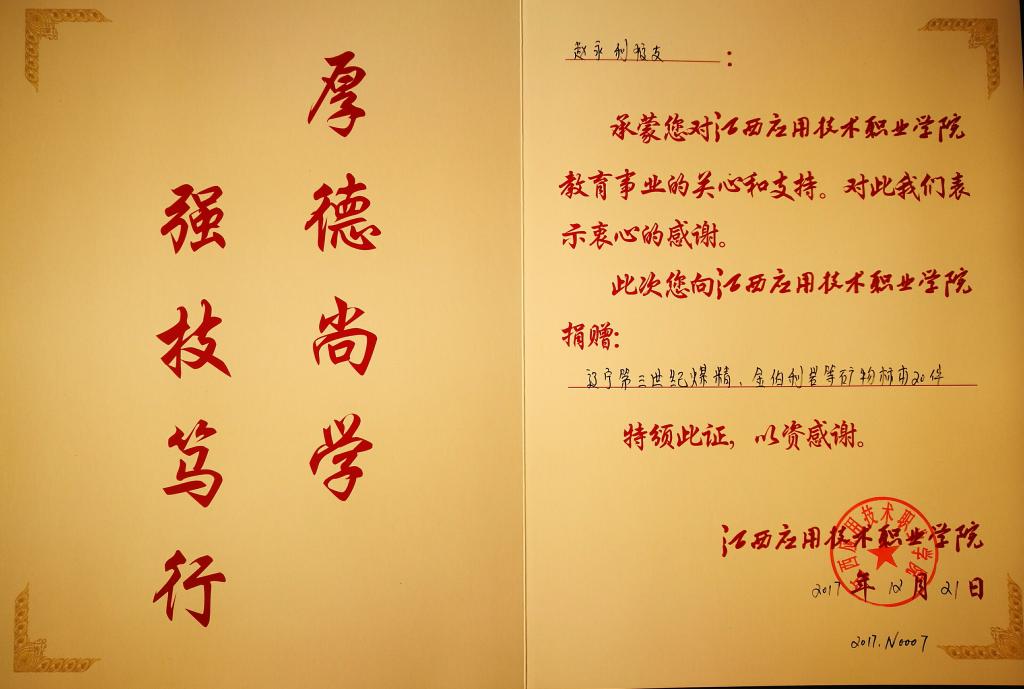 厚德尚学
强技笃行
赵永利校友：
承蒙您对江西应用技术职业学院
教育事业的关心和支持。对此我们表
示衷心的感谢。
此次您向江西应用技术职业学院
捐赠：
辽宁第三世纪煤精、金伯利岩等矿物标本20件
特颁此证，以资感谢。
江西应用技术职业学院
2017年12月21日
2017.N0007
江西应用技术职业学院